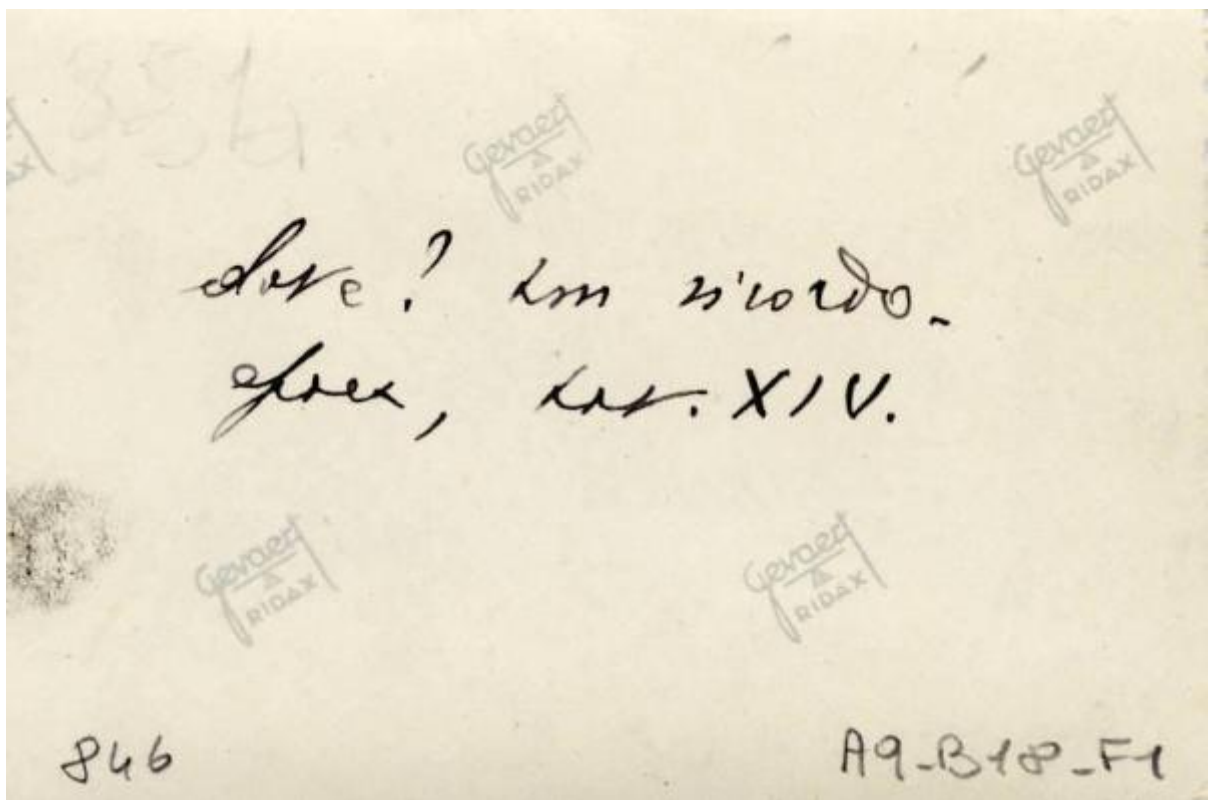 354
Gevaert
RIDAX
Gevaert
RIDAX
dove? non ricordo.
epoca, sec. XIV.
Gevaert
RIDAX
Gevaert
RIDAX
846
A9-B18-F1